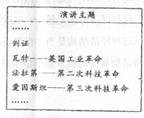 演讲主题
……
例证
瓦特——英国工业革命
法拉第——第二次科技革命
爱因斯坦——第三次科技革命
……